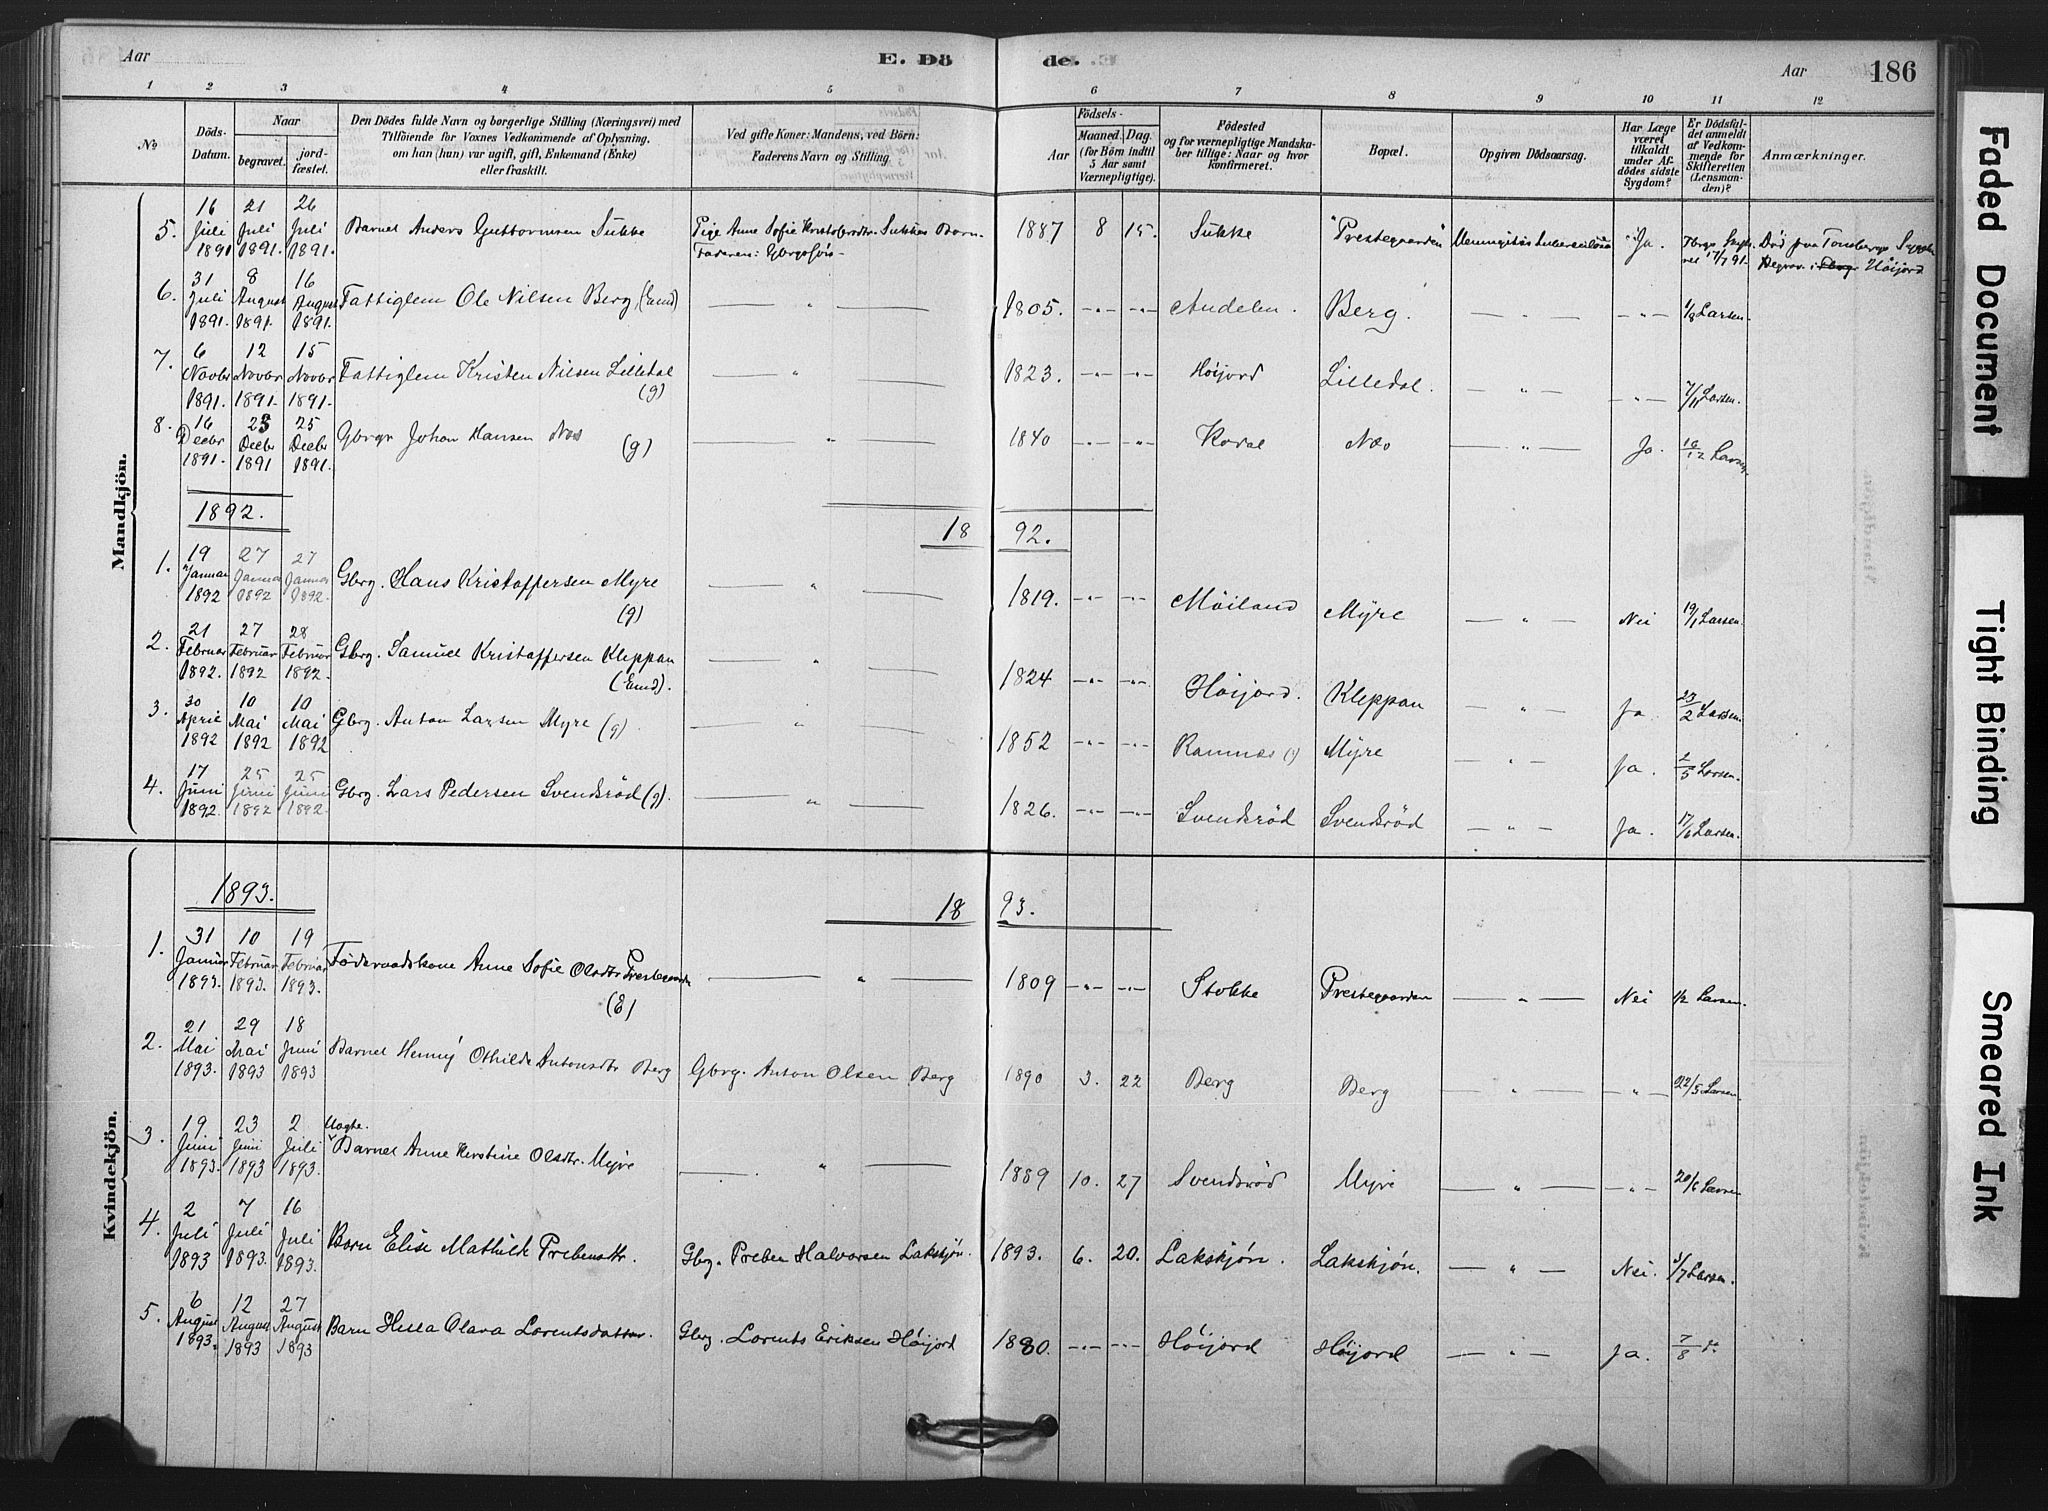 Aar E. Dö de. Aar 186
1 2 3 4 5 6 7 8 9 10 11 12
No
Döds-Datum.
Naar
begravet.
jord-fæstet.
Den Dödes fulde Navn og borgerlige Stilling (Næringsvei) med
Tilföiende for Voxnes Vedkommende af Oplysning,
om han (hun) var ugift, gift, Enkemand (Enke)
eller fraskilt.
Ved gifte Koner: Mandens, ved Börn:
Faderens Navn og Stilling.
Födsels-
Aar
Maaned. Dag.
(for Börn indtil
5 Aar samt
Værnepligtige).
Födested
og for værnepligtige Mandska-
ber tillige: Naar og hvor
konfirmeret.
Bopæl.
Opgiven Dödsaarsag.
Har Læge
været
tilkaldt
under Af-
dödes sidste
Sygdom?
Er Dödsfal-
det anmeldt
af Vedkom-
mende for
Skifteretten
(Lensman-
den)?
Anmærkninger.
Mandkjön.
5. 16 Juli 1891 21 Juli 1891. 26 Juli 1891. Barnet Anders Guttormsen Sukke Pige Anne Sofie Kristofersdtr. Sukkes Barn. 1887 8 15. Sukke Prestegaarden Meningitis tuberculosa Ja. 17/7 91. Död paa Tonsbergs
Faderen: Begrav. i Höijord
6. 31 Juli 1891. 8 August 1891. 16 August 1891. Fattiglem Ole Nilsen Berg (Emd) — „ — 1805. -„- -„- Andelen. Berg. — „ — -„- 1/8 Larsen.
7. 6 Novbr 1891. 12 Novbr 1891. 15 Novbr 1891. Fattiglem Kristen Nilsen Lilledal (g) — „ — 1823. -„- -„- Höijord Lilledal. — „ — -„- 7/11 Larsen.
8. 16 Decbr 1891. 23 Decbr 1891 25 Decbr 1891. Gbrgr Johan Hansen Næs (g) — „ — 1840 -„- -„- Kodal Næs — „ — Ja. /12 Larsen.
1892. 18 92.
1. 19 Januar 1892 27 Januar 1892 27 Januar 1892. Gbrg. Hans Kristoffersen Myre (g) — „ — 1819. -„- -„- Möiland Myre — „ — Nei 19/1 Larsen.
2. 21 Februar 1892. 27 Februar 1892 28 Februar 1892. Gbrg. Samuel Kristoffersen Kleppan (Emd). — „ — 1824 -„- -„- Höijord. Kleppan — „ — Ja. 23/2 Larsen.
3. 30 April 1892 10 Mai 1892 10 Mai 1892 Gbrg. Anton Larsen Myre (g) — „ — 1852 -„- -„- Ramnes (?) Myre — „ — Ja. 2/5 Larsen.
4. 17 Juni 1892. 25 Juni 1892 25 Juni 1892. Gbrg. Lars Pedersen Svendsröd (g). — „ — 1826. -„- -„- Svendsröd Svendsröd — „ — Ja. 17/6 Larsen.
Kvindekjön.
1893. 18 93.
1. 31 Januar 1893. 10 Februar 1893. 19 Februar 1893. Föderaadskone Anne Sofie Olsdtr Prestegaarden (E) — „ — 1809 -„- -„- Stokke Prestegaarden — „ — Nei 1/2 Larsen.
2. 21 Mai 1893. 29 Mai 1893 18 Juni 1893 Barnet Henny Othilde Antonsdtr Berg Gbrg. Anton Olsen Berg 1890 3. 22 Berg Berg — „ — -„- 22/5 Larsen.
3. 19 Juni 1893. 23 Juni 1893 2 Juli 1893. Uægte.
Barnet Anne Kerstine Olsdtr. Myre — „ — 1889 10. 27 Svendsröd Myre — „ — -„- 20/6 Larsen
4. 2 Juli 1893 7 Juli 1893. 16 Juli 1893. Barn Elise Mathilde Prebensdtr. Gbrg. Preben Halvorsen Lakskjön. 1893. 6. 20. Lakskjön. Lakskjön. — „ — Nei. 3/7 Larsen.
5. 6 August 1893. 12 August 1893 27 August 1893 Barn Hella Olava Lorentsdatter. Gbrg. Lorents Eriksen Höijord 1880. -„- -„- Höijord Höijord — „ — Ja. 7/8 do
Faded Document
Tight Binding
Smeared Ink